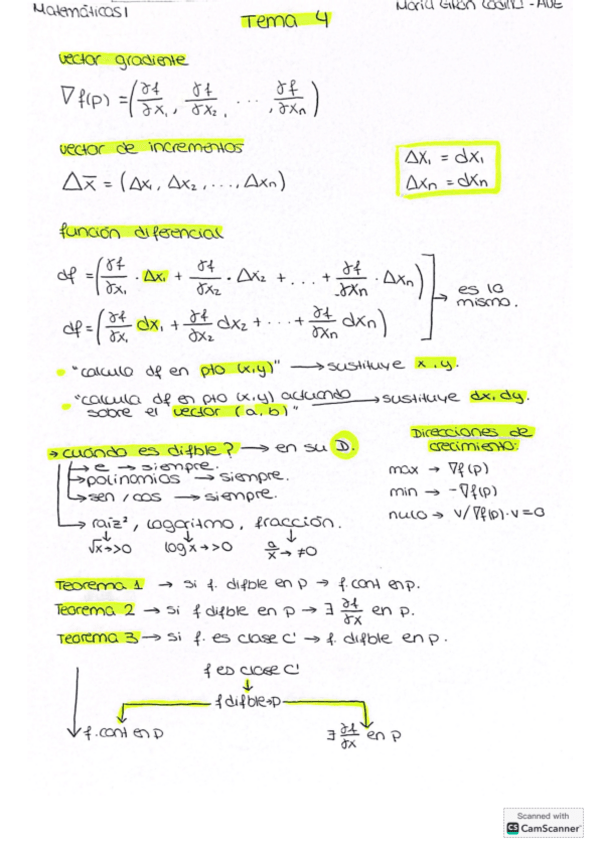 Matemáticas I
María Girón - ADE
Tema 4
vector gradiente
∇f(p) = (∂f/∂x₁, ∂f/∂x₂, ..., ∂f/∂xₙ)
vector de incrementos
Δx̄ = (Δx₁, Δx₂, ..., Δxₙ)
Δx₁ = dx₁
Δxₙ = dxₙ
función diferencial
df = (∂f/∂x₁ · Δx₁ + ∂f/∂x₂ · Δx₂ + ... + ∂f/∂xₙ · Δxₙ)
df = (∂f/∂x₁ dx₁ + ∂f/∂x₂ dx₂ + ... + ∂f/∂xₙ dxₙ)
→ es lo
mismo.
- "calculo df en pto (x,y)" → sustituye x,y.
- "calcula df en pto (x,y) actuando → sustituye dx, dy.
sobre el vector (a,b)"
→ cuándo es difble? → en su D.
→ e → siempre.
→ polinomios → siempre.
→ sen/cos → siempre.
→ raíz², logaritmo, fracción.
√x → >0 log x → >0 a/x → ≠0
Direcciones de
crecimiento:
max → ∇f(p)
min → -∇f(p)
nulo → v/∇f(p)·v=0
Teorema 1 → si f. difble en p → f. cont en p.
Teorema 2 → si f difble en p → ∃ ∂f/∂x en p.
Teorema 3 → si f. es clase C' → f. difble en p.
f es clase C'
↓
f difble→p
f. cont en p ∃ ∂f/∂x en p
Scanned with
CS CamScanner